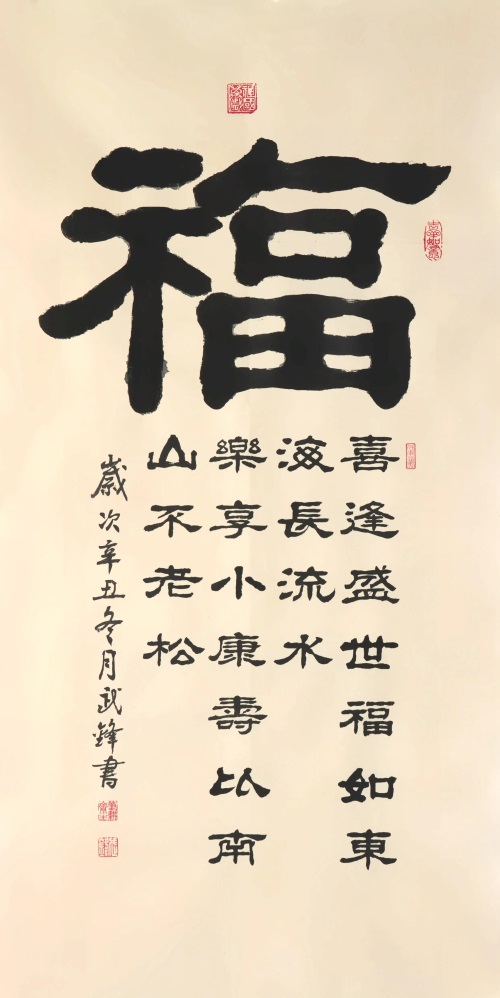 福
喜逢盛世福如東
海長流水
樂享小康壽比南
山不老松
歲次辛丑冬月武鋒書